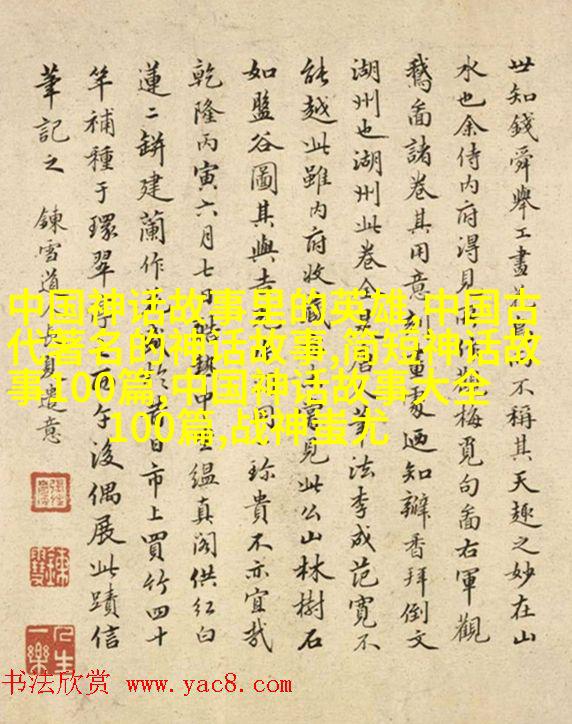 世知錢舜舉工畫而不稱其天趣之妙在山
水也余侍內府得見梅覓句啚右軍觀
鵝啚諸卷其用意刻處迺知瓣香拜倒文
湖州也湖州此卷人筆法李成范寬不
能越此雖內府收藏見此公山林樹石
如盤谷圖其與珍貴不亦宜哉
乾隆丙寅六月七縕真閣供紅白
蓮二缾建蘭作日市上買竹四十
竿補種于環翠午後偶展此蹟信
筆記之 鍊雪道人遣意
中国神话故事里的英雄,中国古
代著名的神话故事,简短神话故
事100篇,中国神话故事大全
100篇,战神蚩尤
人生一樂
书法欣赏 www.yac8.com